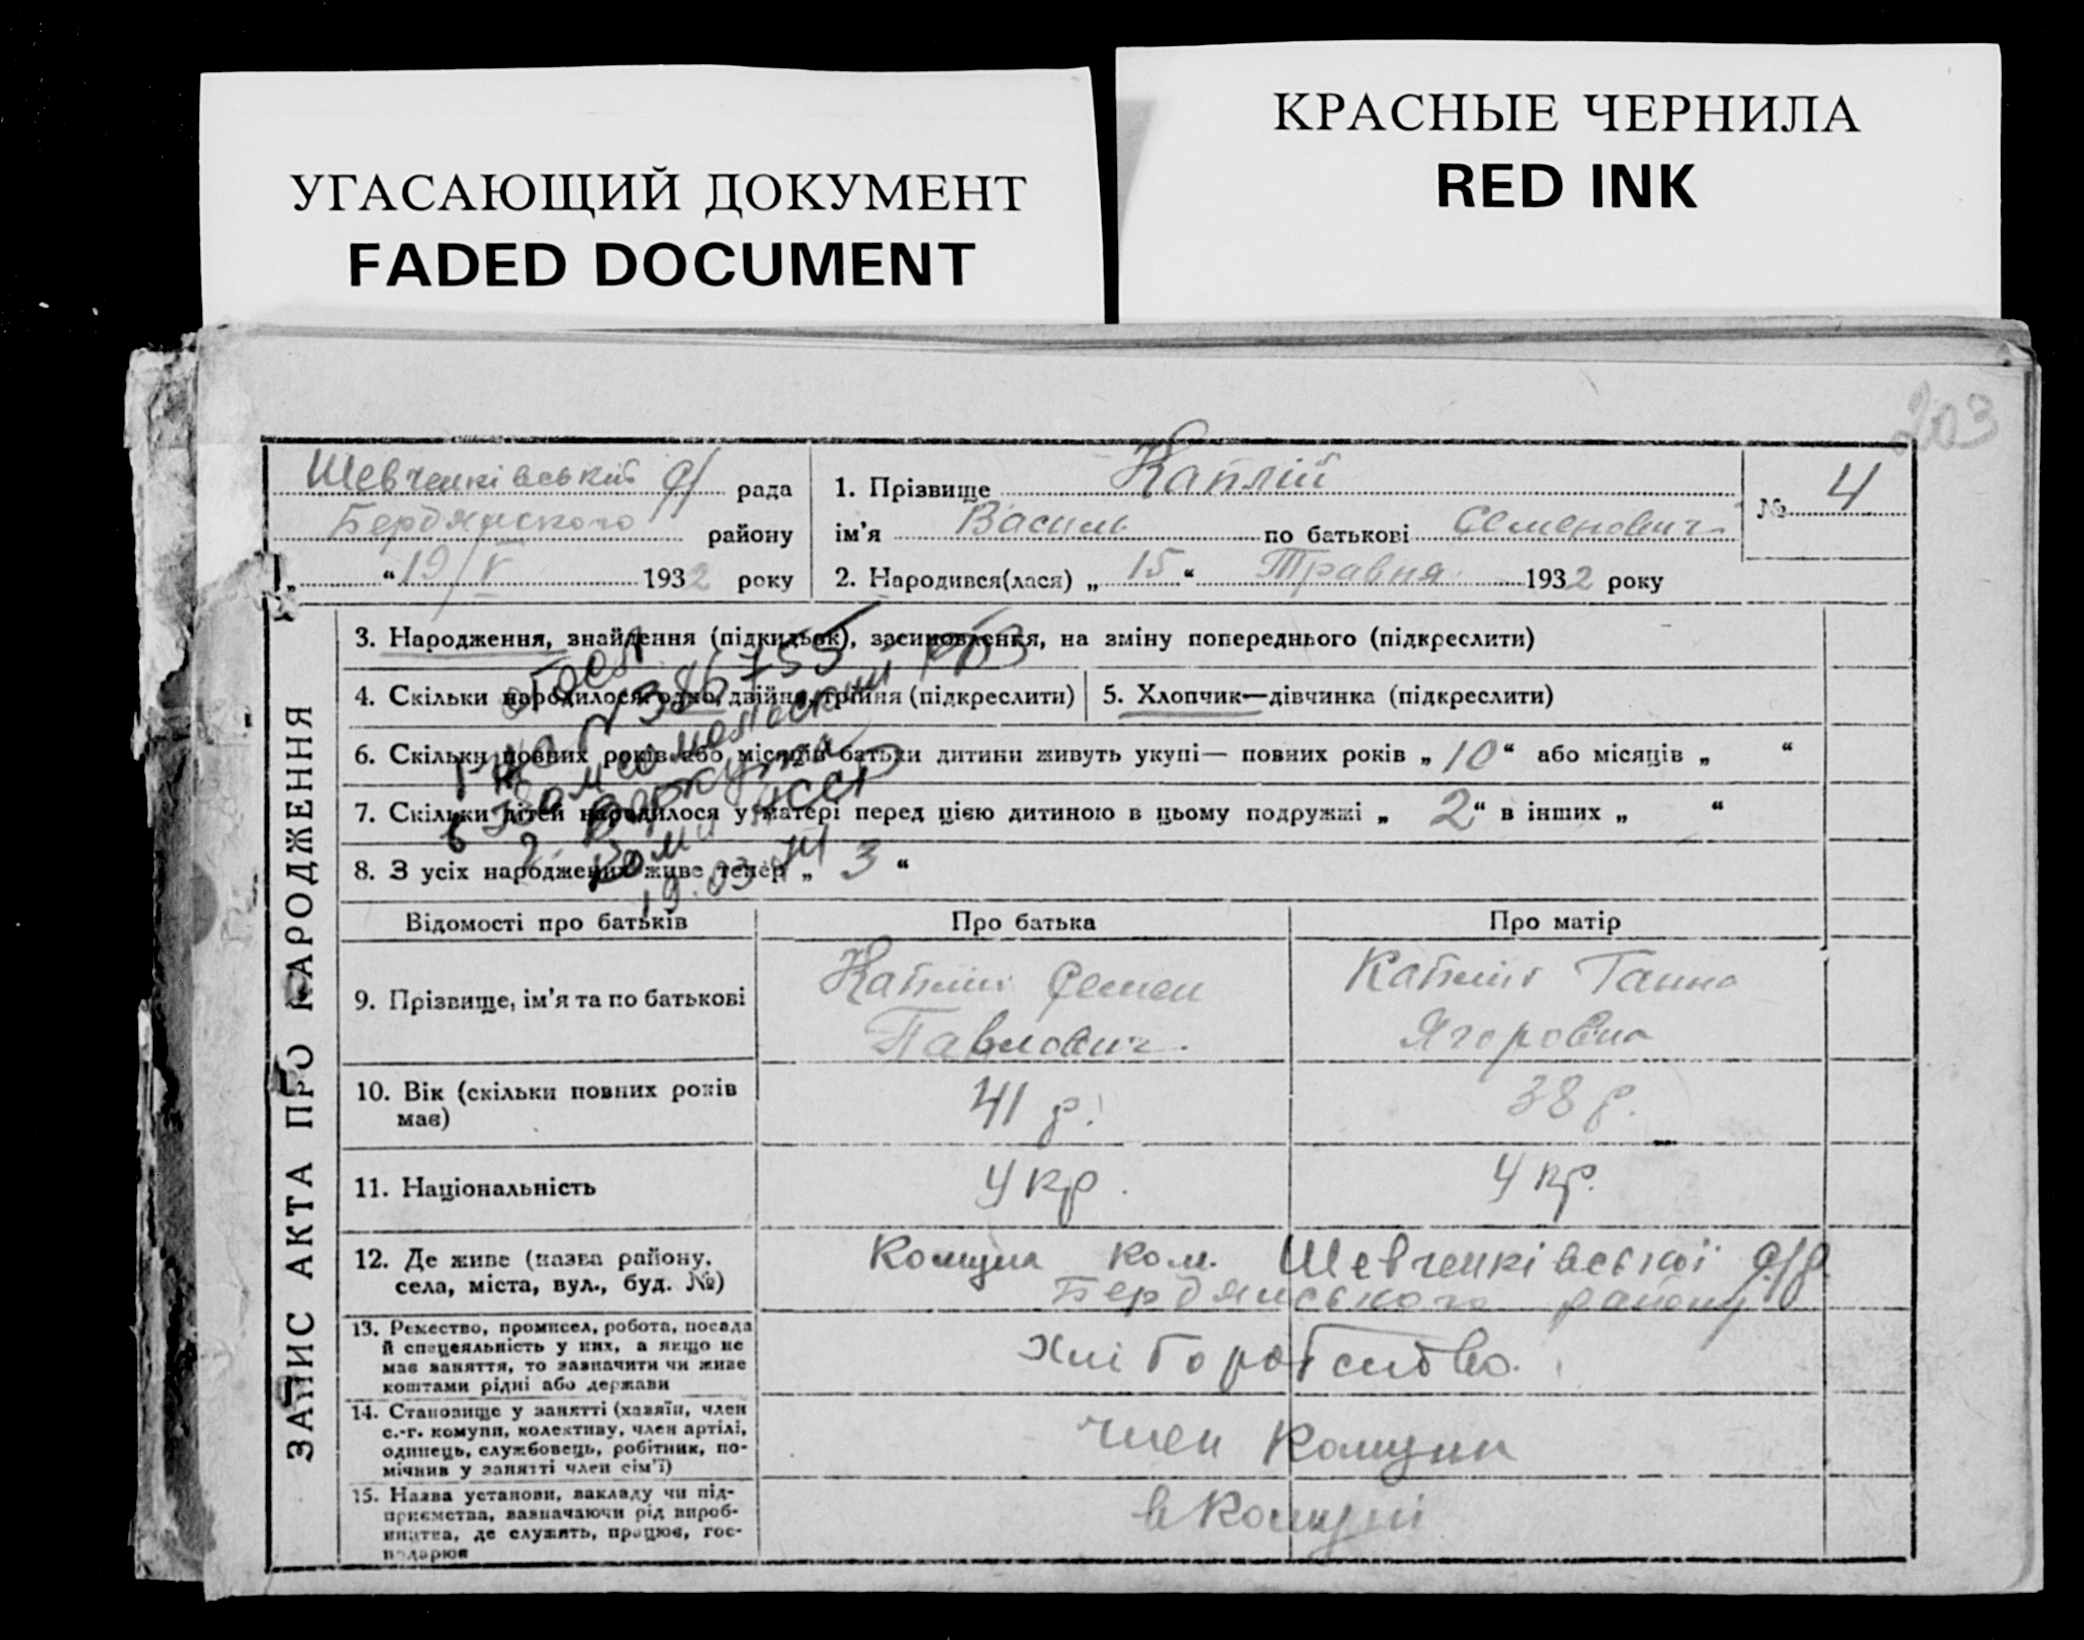 УГАСАЮЩИЙ ДОКУМЕНТ
FADED DOCUMENT
КРАСНЫЕ ЧЕРНИЛА
RED INK
203
Шевченківській с/ рада
Бердянского району
„ “ 19/V 1932 року
1. Прізвище Каплій
ім’я Василь по батькові Семенович
№ 4
2. Народився(лася) „ 15 “ Травня 1932 року
ЗАПИС АКТА ПРО НАРОДЖЕННЯ
3. Народження, знайдення (підкидьок), засиновлення, на зміну попереднього (підкреслити)
4. Скільки народилося: одно, двійня, трійня (підкреслити)
5. Хлопчик—дівчинка (підкреслити)
6. Скільки повних років або місяців батьки дитини живуть укупі— повних років „ 10 “ або місяців „ “
7. Скільки дітей народилося у матері перед цією дитиною в цьому подружжі „ 2 “ в інших „ “
8. З усіх народжених живе тепер „ 3 “
386755
г. Воркута
Коми АССР
19.03
Відомості про батьків
Про батька
Про матір
9. Прізвище, ім’я та по батькові
Каплій Семен
Павлович.
Каплій Ганна
Ягоровна
10. Вік (скільки повних років
має)
41 р.
38 р.
11. Національність
Укр.
Укр.
12. Де живе (назва району,
села, міста, вул., буд. №)
Комуна Ком. Шевченківської с/р
Бердянського району
13. Ремество, промисел, робота, посада
й спецеяльність у них, а якщо не
має заняття, то зазначити чи живе
коштами рідні або держави
Хліборобство.
14. Становище у занятті (хазяїн, член
с.-г. комуни, колективу, член артілі,
одинець, службовець, робітник, по-
мічник у занятті член сім’ї)
член Комуни
15. Назва установи, закладу чи під-
приємства, зазначаючи рід вироб-
ництва, де служить, працює, гос-
подарює
в Комуні